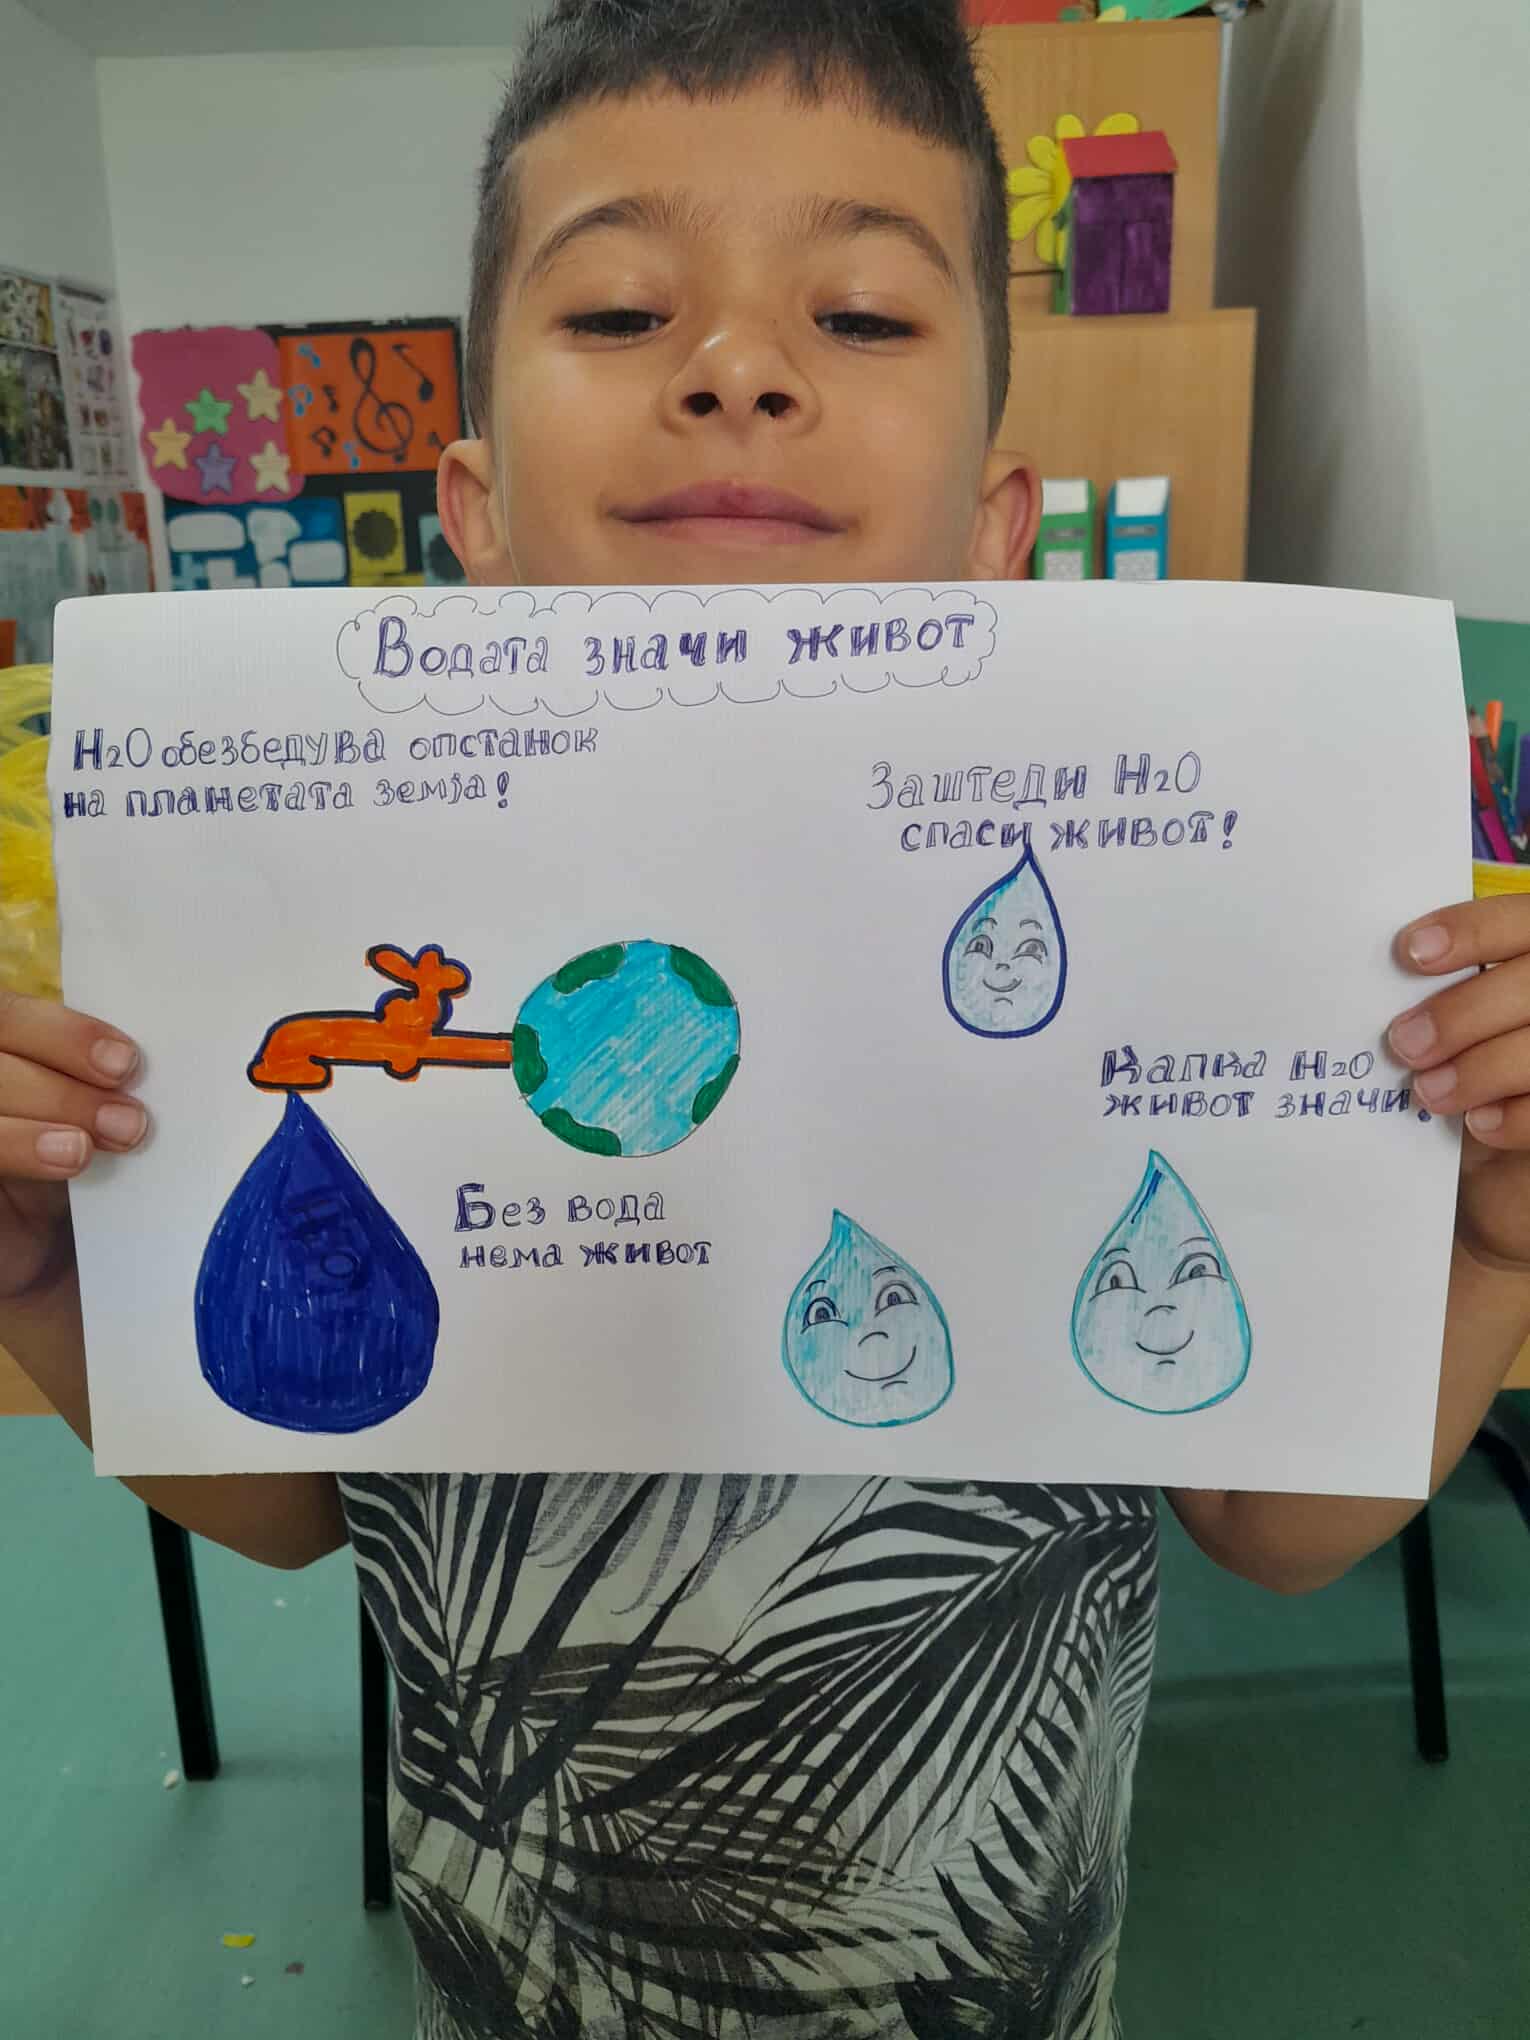 Водата значи живот
H₂O обезбедува опстанок
на планетата земја!
Заштеди H₂O
спаси живот!
Капка H₂O
живот значи!
Без вода
нема живот
H₂O